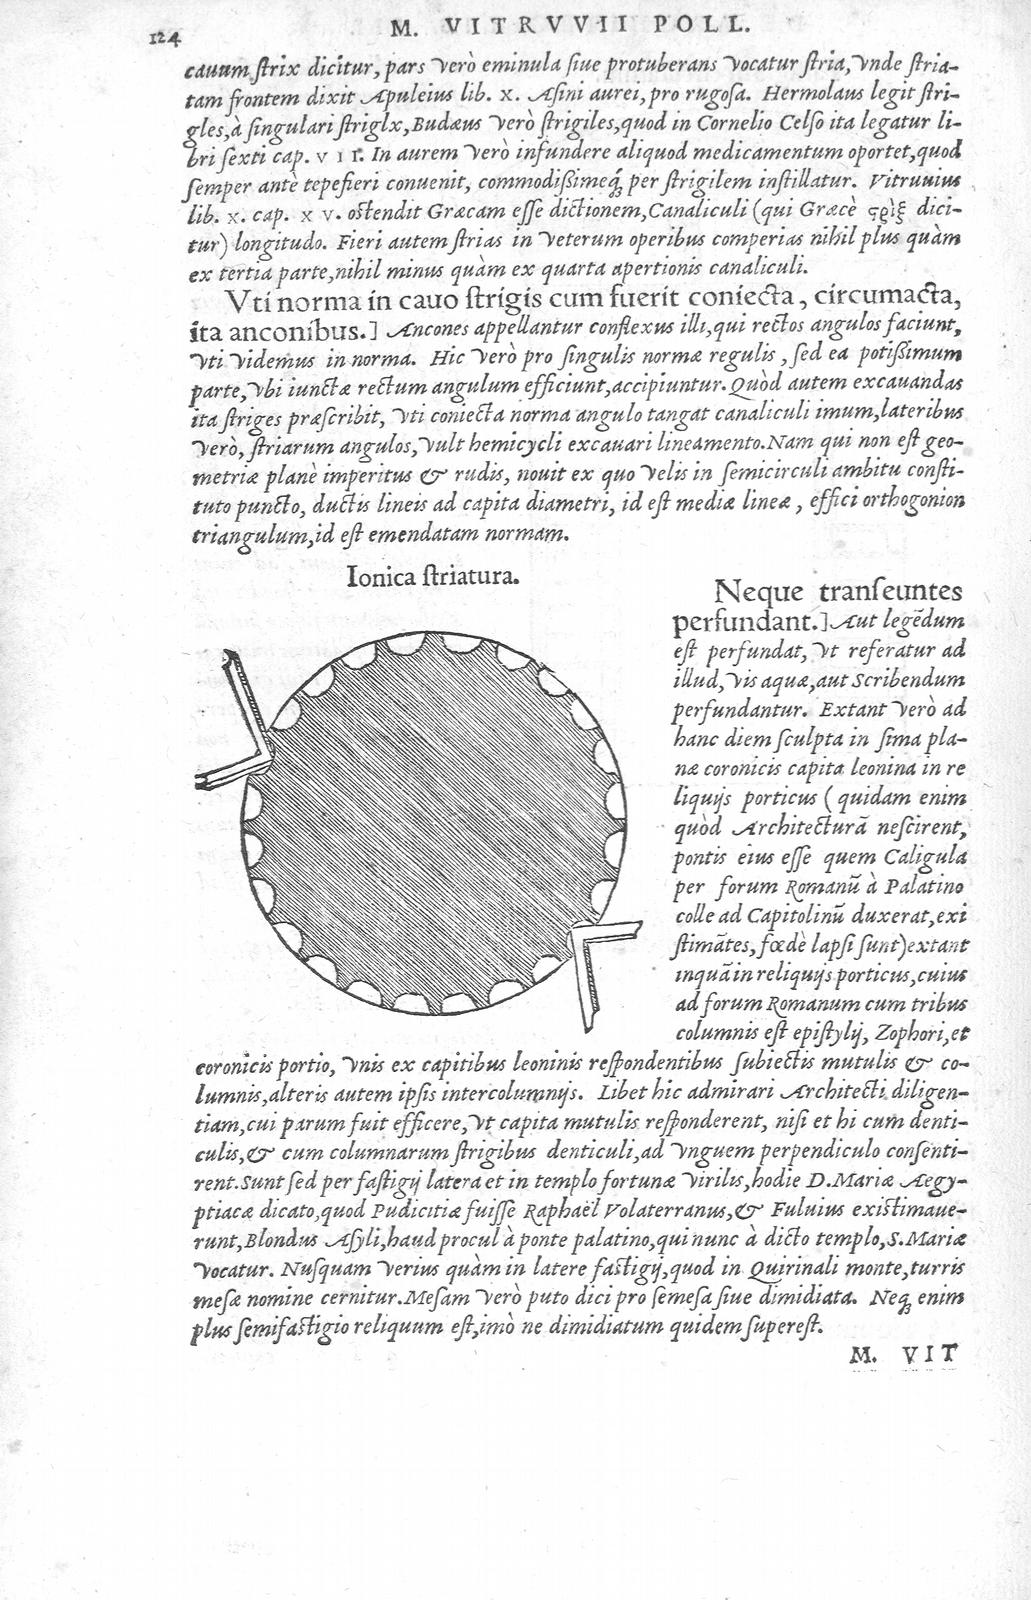 124
M. VITRVVII POLL.
cauum ſtrix dicitur, pars verò eminula ſiue protuberans vocatur ſtria, vnde ſtria-
tam frontem dixit Apuleius lib. X. Aſini aurei, pro rugoſa. Hermolaus legit ſtri-
gles, à ſingulari ſtriglx, Budæus verò ſtrigiles, quod in Cornelio Celſo ita legatur li-
bri ſexti cap. VII. In aurem verò infundere aliquod medicamentum oportet, quod
ſemper antè tepefieri conuenit, commodißimeq́; per ſtrigilem inſtillatur. Vitruuius
lib. X. cap. XV. oſtendit Græcam eſſe dictionem, Canaliculi (qui Græcè ϛρὶξ dici-
tur) longitudo. Fieri autem ſtrias in veterum operibus comperias nihil plus quàm
ex tertia parte, nihil minus quàm ex quarta apertionis canaliculi.
Vti norma in cauo ſtrigis cum fuerit coniecta, circumacta,
ita anconibus.] Ancones appellantur conflexus illi, qui rectos angulos faciunt,
vti videmus in norma. Hic verò pro ſingulis normæ regulis, ſed ea potißimum
parte, vbi iunctæ rectum angulum efficiunt, accipiuntur. Quòd autem excauandas
ita ſtriges præſcribit, vti coniecta norma angulo tangat canaliculi imum, lateribus
verò, ſtriarum angulos, vult hemicycli excauari lineamento. Nam qui non eſt geo-
metriæ planè imperitus & rudis, nouit ex quo velis in ſemicirculi ambitu conſti-
tuto puncto, ductis lineis ad capita diametri, id eſt mediæ lineæ, effici orthogonion
triangulum, id eſt emendatam normam.
Ionica ſtriatura.
Neque tranſeuntes
perfundant.] Aut legẽdum
eſt perfundat, vt referatur ad
illud, vis aquæ, aut Scribendum
perfundantur. Extant verò ad
hanc diem ſculpta in ſima pla-
næ coronicis capita leonina in re
liquijs porticus (quidam enim
quòd Architecturā neſcirent,
pontis eius eſſe quem Caligula
per forum Romanū à Palatino
colle ad Capitolinū duxerat, exi
ſtimātes, fœdè lapſi ſunt) extant
inquā in reliquijs porticus, cuius
ad forum Romanum cum tribus
columnis eſt epiſtylij, Zophori, et
coronicis portio, vnis ex capitibus leoninis reſpondentibus ſubiectis mutulis & co-
lumnis, alteris autem ipſis intercolumnijs. Libet hic admirari Architecti diligen-
tiam, cui parum fuit efficere, vt capita mutulis reſponderent, niſi et hi cum denti-
culis, & cum columnarum ſtrigibus denticuli, ad vnguem perpendiculo conſenti-
rent. Sunt ſed per faſtigij latera et in templo fortunæ virilis, hodie D. Mariæ Aegy-
ptiacæ dicato, quod Pudicitiæ fuiſſe Raphaël Volaterranus, & Fuluius exiſtimaue-
runt, Blondus Aſyli, haud procul à ponte palatino, qui nunc à dicto templo, S. Mariæ
vocatur. Nuſquam verius quàm in latere faſtigij, quod in Quirinali monte, turris
meſæ nomine cernitur. Meſam verò puto dici pro ſemeſa ſiue dimidiata. Neq; enim
plus ſemifaſtigio reliquum eſt, imò ne dimidiatum quidem ſupereſt.
M. VIT